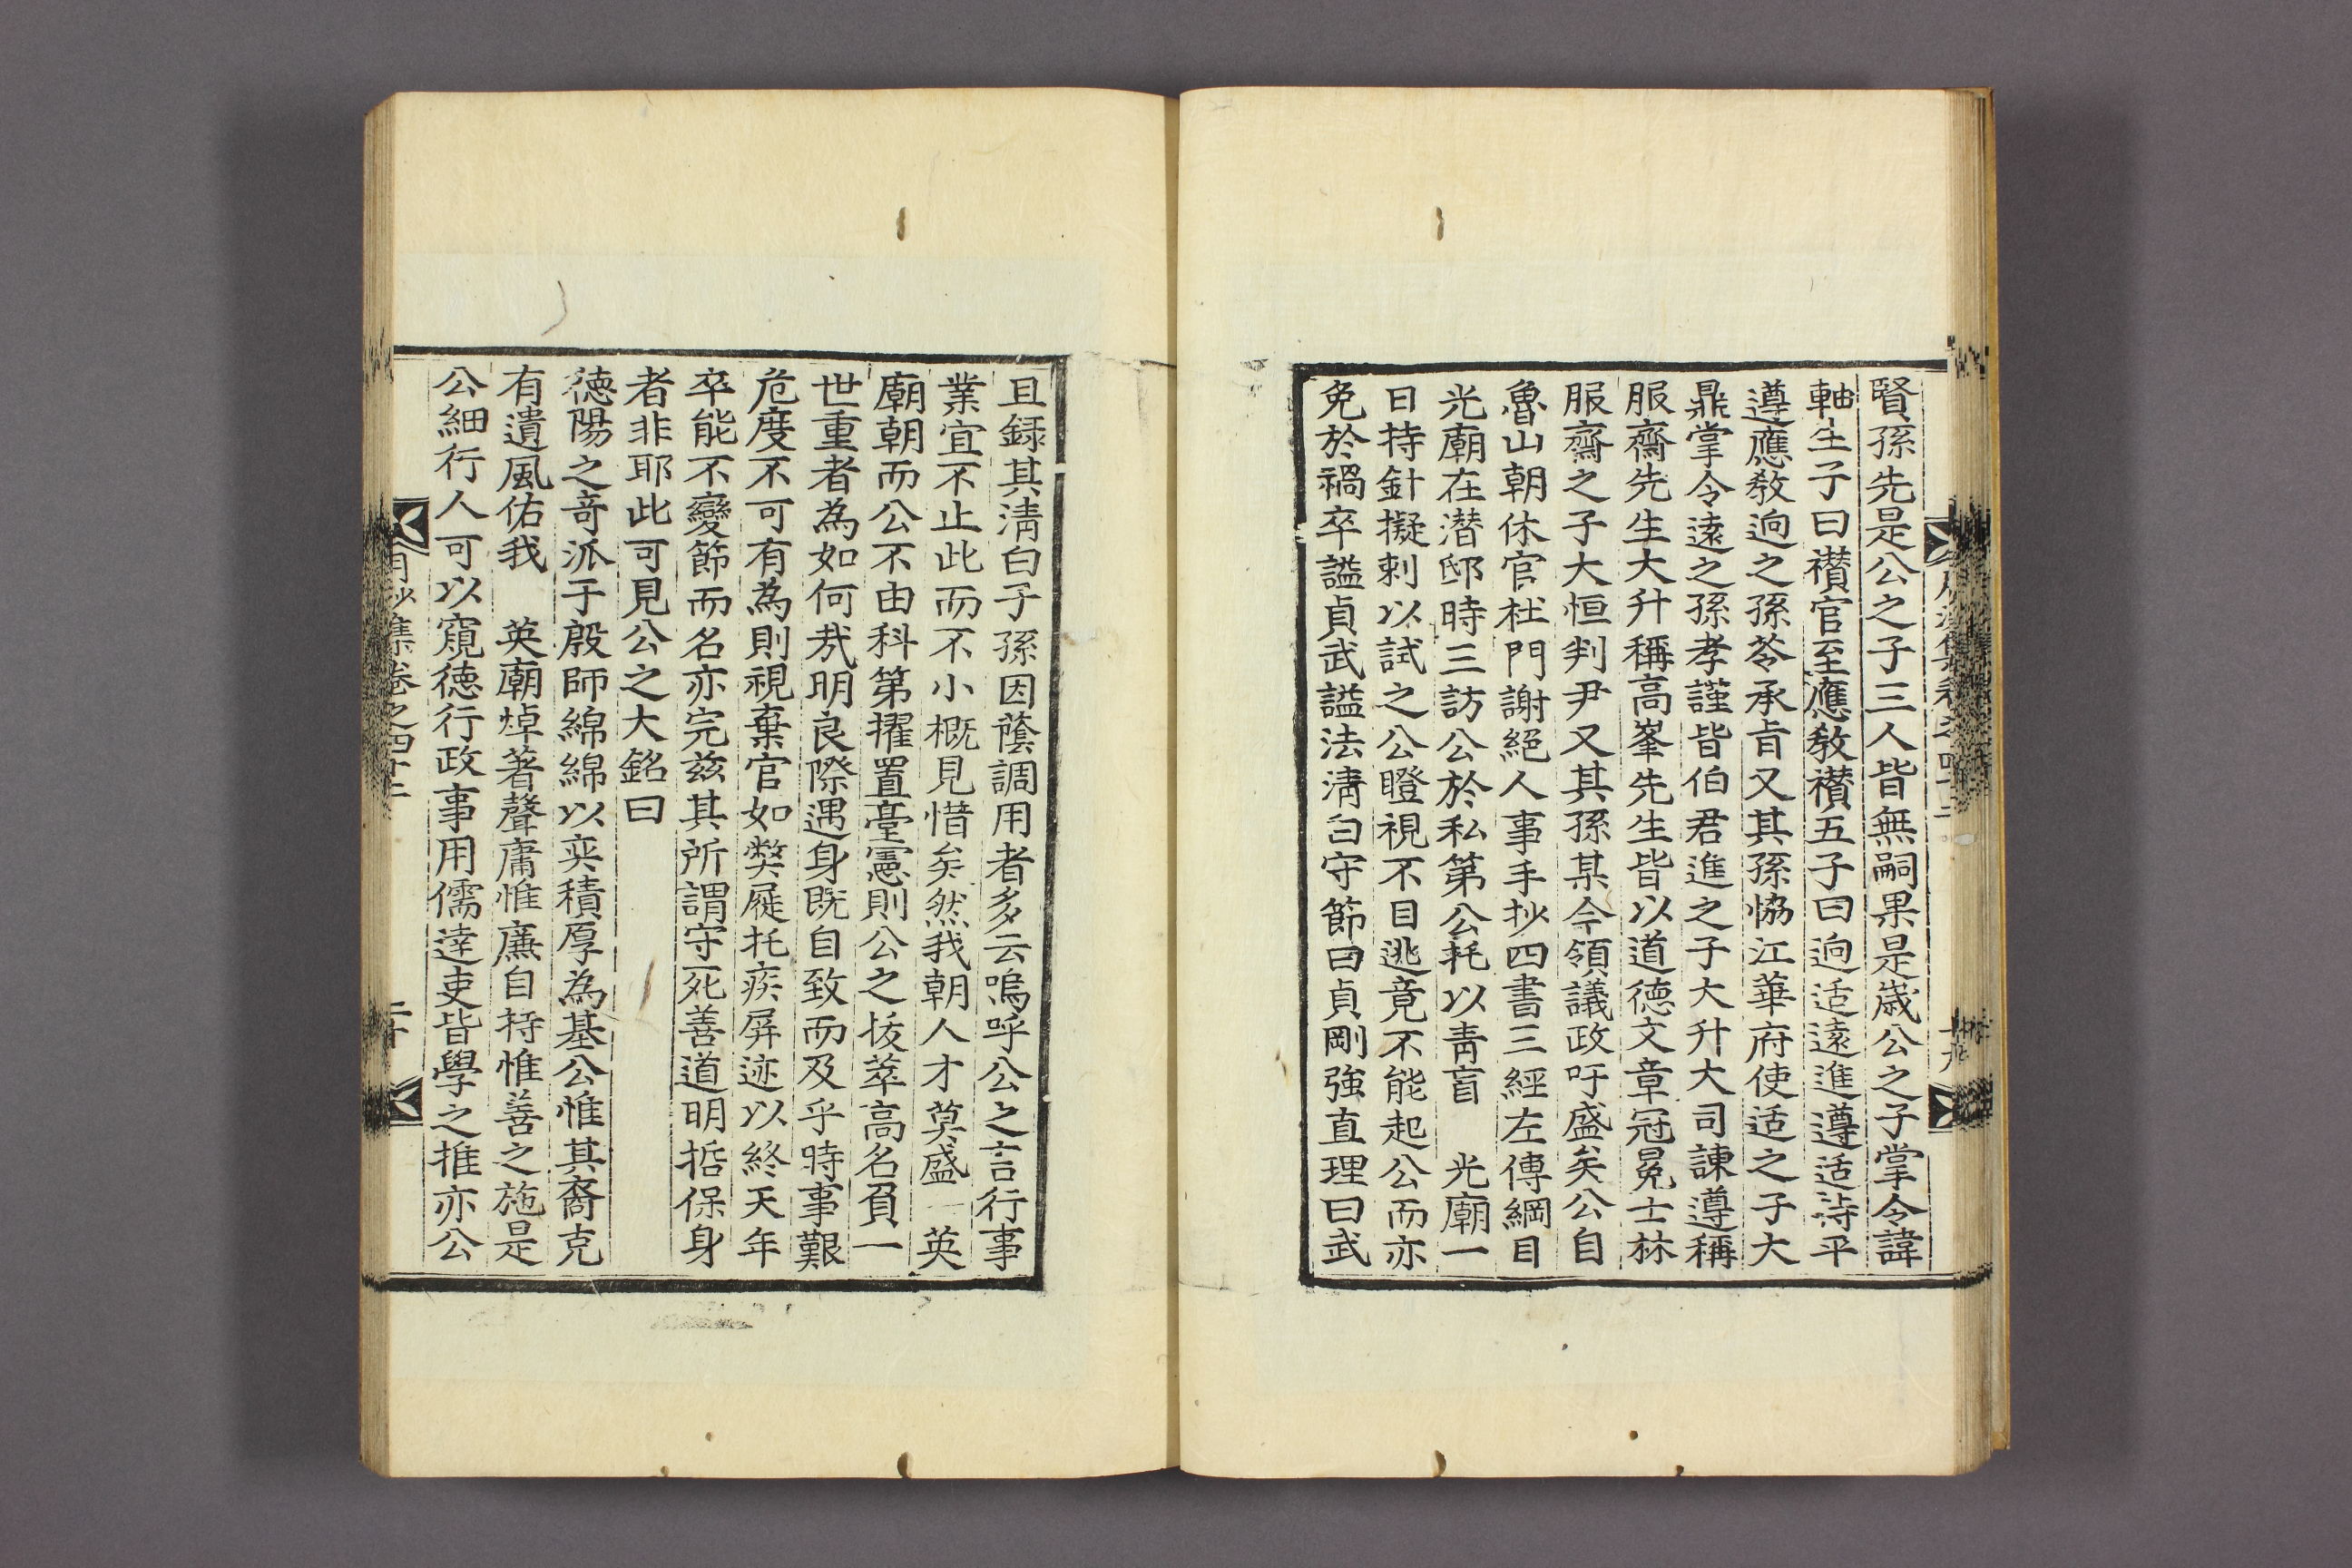 賢孫先是公之子三人皆無嗣果是歲公之子掌令諱
軸生子曰襸官至應敎襸五子曰逈适遠進遵适洔平
遵應敎逈之孫苓承旨又其孫恊江華府使适之子大
鼎掌令遠之孫孝謹皆伯君進之子大升大司諫遵稱
服齋先生大升稱高峯先生皆以道德文章冠冕士林
服齋之子大恒判尹又其孫某今領議政吁盛矣公自
魯山朝休官杜門謝絕人事手抄四書三經左傳綱目
光廟在潛邸時三訪公於私第公托以靑盲 光廟一
日持針擬刺以試之公瞪視不目逃竟不能起公而亦
免於禍卒謚貞武謚法淸白守節曰貞剛強直理曰武
且録其淸白子孫因蔭調用者多云嗚呼公之言行事
業宜不止此而不小槪見惜矣然我朝人才莫盛 英
廟朝而公不由科第擢置臺憲則公之拔萃高名負一
世重者為如何㢤明良際遇身旣自致而及乎時事艱
危度不可有為則視棄官如獘屣托疾屛迹以終天年
卒能不變節而名亦完玆其所謂守死善道明哲保身
者非耶此可見公之大銘曰
德陽之奇派于殷師綿綿以奕積厚為基公惟其裔克
有遺風佑我 英廟焯著聲庸惟廉自持惟善之施是
公細行人可以窺德行政事用儒達吏皆學之推亦公
集卷之四十二
二十